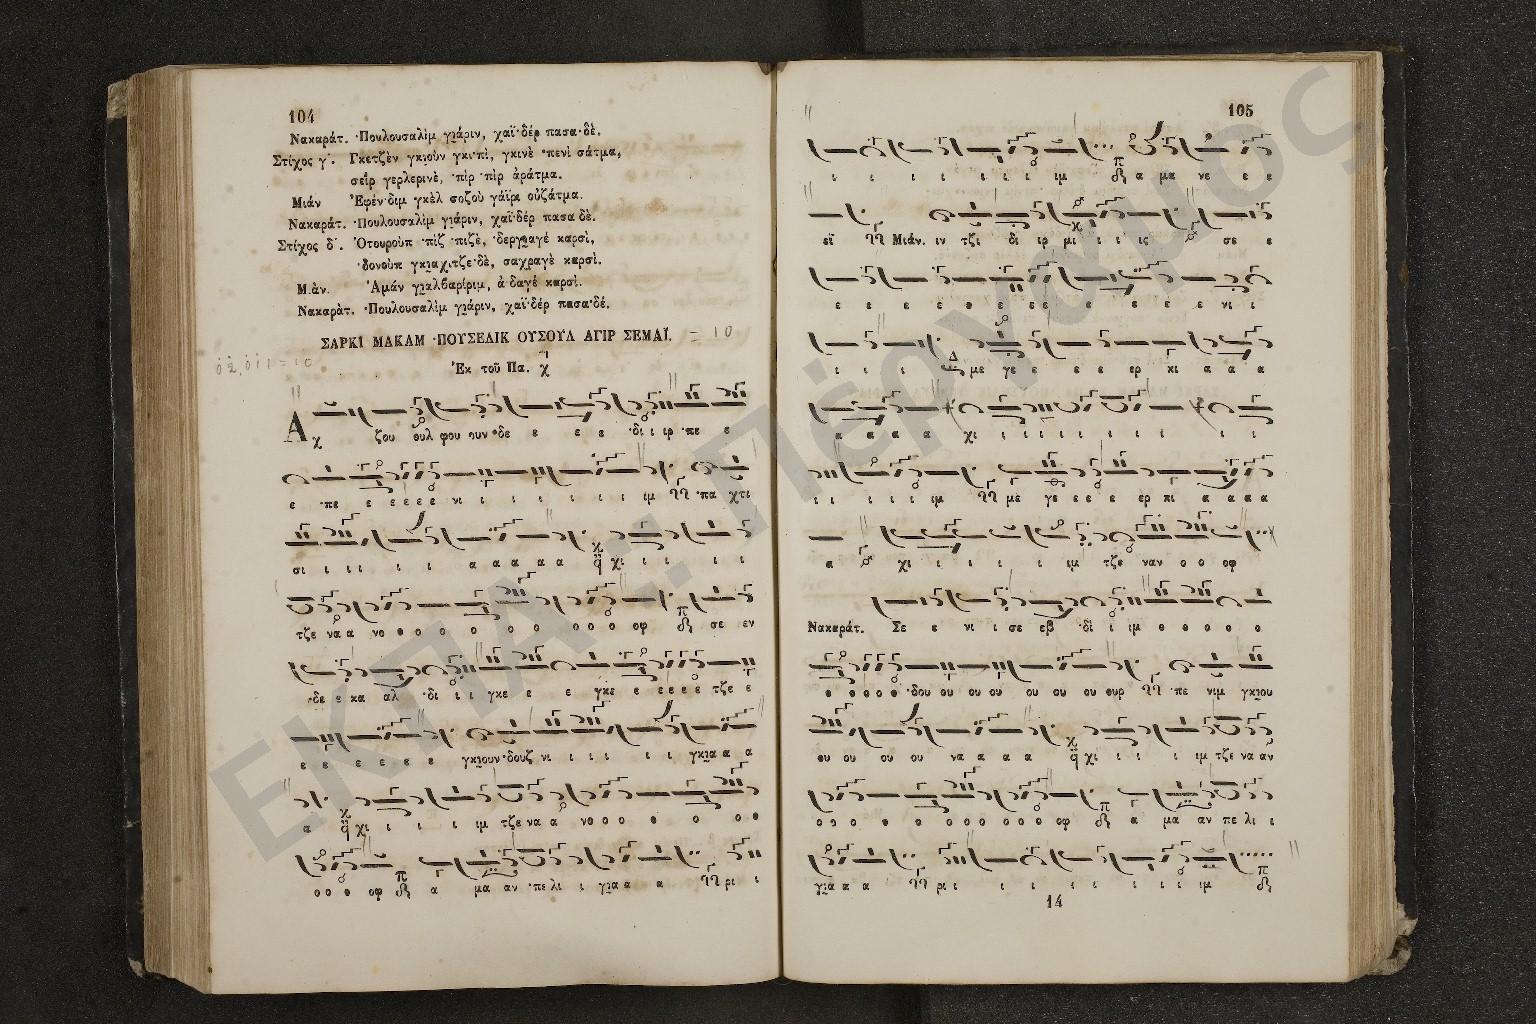 104
Νακαράτ. ·Πουλουσαλὶμ γιάριν, χαϊ·δέρ πασα·δὲ.
Στίχος γ΄. Γκετζὲν γκιοὺν γκι·πὶ, γκινὲ ·πενὶ σάτμα,
σεῒρ γερλερινὲ, ·πὶρ ·πὶρ ἀράτμα.
Μιάν Ἐφέν·διμ γκὲλ σοζοὺ γάϊρι οὐζάτμα.
Νακαράτ. ·Πουλουσαλὶμ γιάριν, χαϊ·δέρ πασα δὲ.
Στίχος δ΄. Ὀτουροὺπ ·πὶζ ·πιζὲ, ·δεργιαγέ καρσὶ,
·δονοὺπ γκιαχιτζε·δὲ, σαχραγὲ καρσὶ.
Μ.ὰν. Ἀμάν γιαλβαρίριμ, ἀ δαγέ καρσὶ.
Νακαρὰτ. ·Πουλουσαλὶμ γιάριν, χαϊ·δέρ πασα·δέ.
ΣΑΡΚΙ ΜΑΚΑΜ ·ΠΟΥΣΕΛΙΚ ΟΥΣΟΥΛ ΑΓΙΡ ΣΕΜΑΪ. = 10
Ἐκ τοῦ Πα.
Α χ ζου ουλ φου ουν ·δε ε ε ε ·δι ι ιρ ·πε ε
ε ·πε ε ε ε ε ε νι ι ι ι ι ι ι ιμ ·πα χτι
σι ι ι ι ι ι ι α α α α α χι ι ι ι ι
τζε να α νο ο ο ο ο ο ο ο ο ο οφ σε εν
·δε ε κα αλ ·δι ι ι γκε ε ε ε γκε ε ε ε ε ε τζε ε
ε ε ε ε ε ε γκιουν ·δουζ νι ι ι ι ι ι γκια α α
α χι ι ι ι ι ιμ τζε να α νο ο ο ο ο ο ο
ο ο ο οφ α μα αν ·πε λι ι για α α ρι ι
105
ι ι ι ι ι ι ι ι ιμ α μα νε ε ε
εϊ Μιάν. ιν τζι δι ιρ μι ι ι ις σε ε
ε ε ε ε ε ε ε ε ε ε ε ε νι ι
ι ι ι με γε ε ε ε ερ κι α α α
α α α α χι ι ι ι ι ι ι ι ι ι
ι ι ι ι ι ι ιμ με γε ε ε ε ερ κι α α α α
α χι ι ι ι ι ιμ τζε ναν ο ο οφ
Νακαράτ. Σε ε νι ι σε εβ ·δι ι ιμ ο ο ο ο ο
ο ο ο ο ο ·δου ου ου ου ου ου ου ουρ ·πε νιμ γκιου
ου ου ου ου να α α α χι ι ι ι ιμ τζε να αν
ο ο ο ο ο ο ο ο ο ο οφ α μα αν πε λι ι
για α α α ρι ι ι ι ι ι ι ι ι ιμ
14
ΕΚΠΑ: Πέργαμος